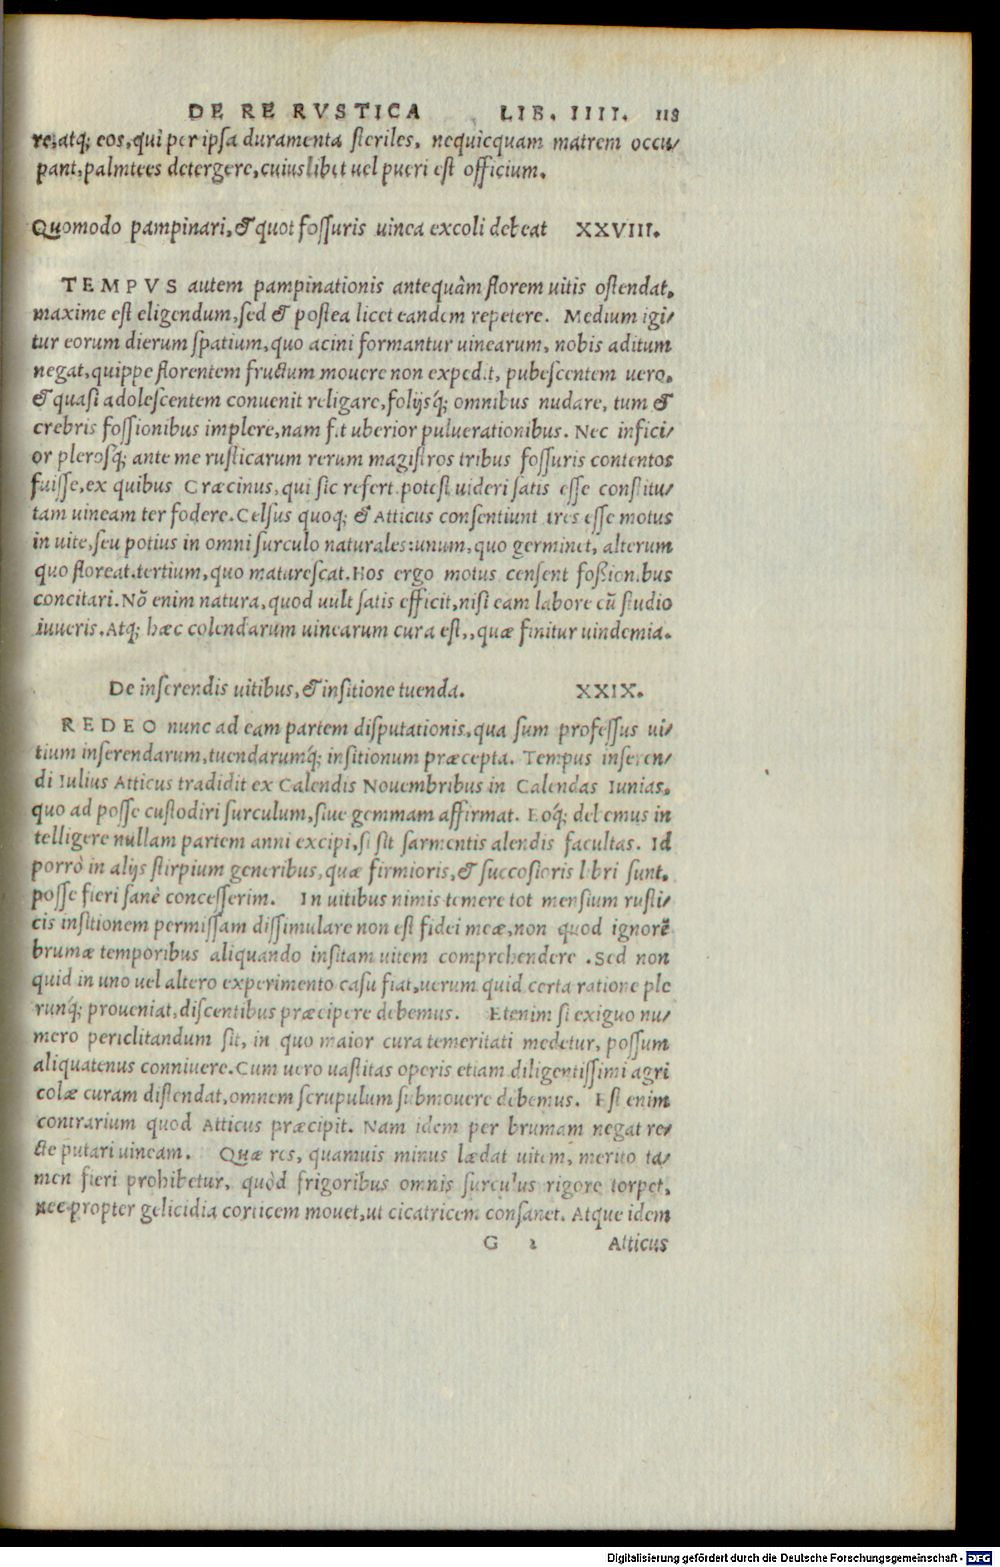 DE RE RVSTICA LIB. IIII. 118
re, atq; eos, qui per ipsa duramenta steriles, nequicquam matrem occu/
pant, palmtees detergere, cuiuslibet uel pueri est officium.
Quomodo pampinari, & quot fossuris uinea excoli debeat XXVIII.
TEMPVS autem pampinationis antequàm florem uitis ostendat,
maxime est eligendum, sed & postea licet eandem repetere. Medium igi/
tur eorum dierum spatium, quo acini formantur uinearum, nobis aditum
negat, quippe florentem fructum mouere non expedit, pubescentem uero,
& quasi adolescentem conuenit religare, folijsq́; omnibus nudare, tum &
crebris fossionibus implere, nam fit uberior puluerationibus. Nec infici/
or plerosq́; ante me rusticarum rerum magistros tribus fossuris contentos
fuisse, ex quibus Græcinus, qui sic refert. potest uideri satis esse constitu/
tam uineam ter fodere. Celsus quoq; & Atticus consentiunt tres esse motus
in uite, seu potius in omni surculo naturales: unum, quo germinet, alterum
quo floreat. tertium, quo maturescat. Hos ergo motus censent foßionibus
concitari. Nõ enim natura, quod uult satis efficit, nisi eam labore cũ studio
iuueris. Atq; hæc colendarum uinearum cura est,, quæ finitur uindemia.
De inserendis uitibus, & insitione tuenda. XXIX.
REDEO nunc ad eam partem disputationis, qua sum professus ui/
tium inserendarum, tuendarumq́; insitionum præcepta. Tempus inseren/
di Iulius Atticus tradidit ex Calendis Nouembribus in Calendas Iunias,
quo ad posse custodiri surculum, siue gemmam affirmat. Eoq́; debemus in
telligere nullam partem anni excipi, si sit sarmentis alendis facultas. Id
porrò in alijs stirpium generibus, quæ firmioris, & succosioris libri sunt,
posse fieri sanè concesserim. In uitibus nimis temere tot mensium rusti/
cis insitionem permissam dissimulare non est fidei meæ, non quod ignorẽ
brumæ temporibus aliquando insitam uitem comprehendere .Sed non
quid in uno uel altero experimento casu fiat, uerum quid certa ratione ple
runq́; proueniat, discentibus præcipere debemus. Etenim si exiguo nu/
mero periclitandum sit, in quo maior cura temeritati medetur, possum
aliquatenus conniuere. Cum uero uastitas operis etiam diligentissimi agri
colæ curam distendat, omnem scrupulum submouere debemus. Est enim
contrarium quod Atticus præcipit. Nam idem per brumam negat re/
cte putari uineam. Quæ res, quamuis minus lædat uitem, merito ta/
men fieri prohibetur, quòd frigoribus omnis surculus rigore torpet,
nec propter gelicidia corticem mouet, ut cicatricem consanet. Atque idem
G 2 Atticus
Digitalisierung gefördert durch die Deutsche Forschungsgemeinschaft - DFG